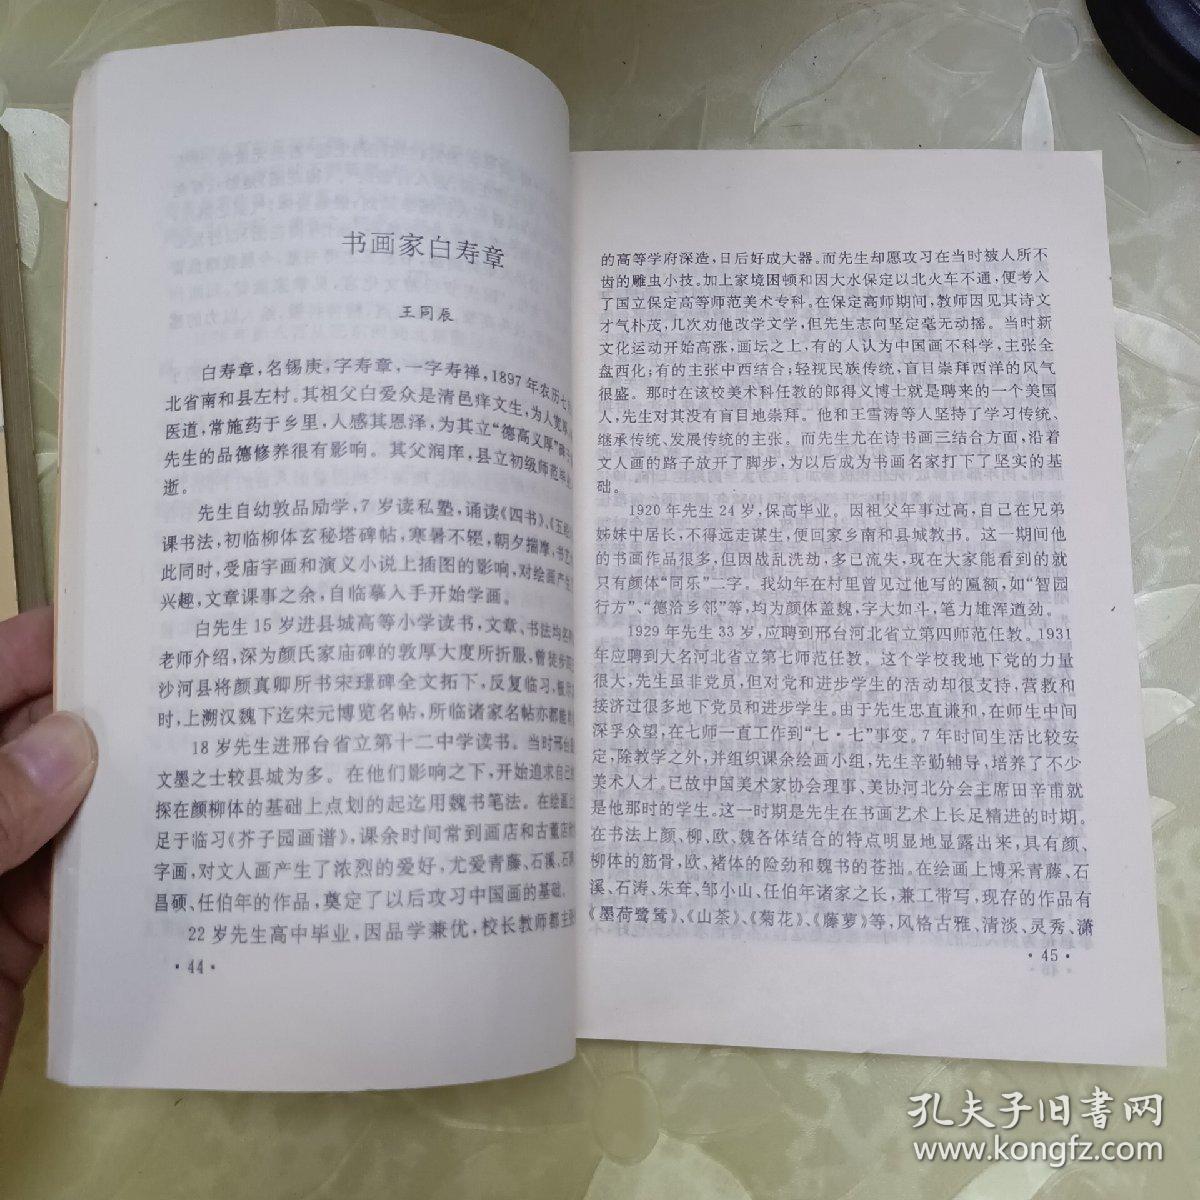 书画家白寿章
王同辰
白寿章，名锡庚，字寿章，一字寿禅，1897年农历七
北省南和县左村。其祖父白爱众是清邑庠文生，为人宽厚
医道，常施药于乡里，人感其恩泽，为其立“德高义厚”碑
先生的品德修养很有影响。其父润庠，县立初级师范毕业
逝。
先生自幼敦品励学，7岁读私塾，诵读《四书》、《五经
课书法，初临柳体玄秘塔碑帖，寒暑不辍，朝夕揣摩，书艺
此同时，受庙宇画和演义小说上插图的影响，对绘画产生
兴趣，文章课事之余，自临摹入手开始学画。
白先生15岁进县城高等小学读书，文章、书法均名列
老师介绍，深为颜氏家庙碑的敦厚大度所折服，曾徒步
沙河县将颜真卿所书宋璟碑全文拓下，反复临习，
时，上溯汉魏下迄宋元博览名帖，所临诸家名帖亦都能
18岁先生进邢台省立第十二中学读书。当时邢台
文墨之士较县城为多。在他们影响之下，开始追求自己
探在颜柳体的基础上点划的起迄用魏书笔法。在绘画上
足于临习《芥子园画谱》，课余时间常到画店和古董店
字画，对文人画产生了浓烈的爱好，尤爱青藤、石溪、石
昌硕、任伯年的作品，奠定了以后攻习中国画的基础。
22岁先生高中毕业，因品学兼优，校长教师都主张
·44·
的高等学府深造，日后好成大器。而先生却愿攻习在当时被人所不
齿的雕虫小技。加上家境困顿和因大水保定以北火车不通，便考入
了国立保定高等师范美术专科。在保定高师期间，教师因见其诗文
才气朴茂，几次劝他改学文学，但先生志向坚定毫无动摇。当时新
文化运动开始高涨，画坛之上，有的人认为中国画不科学，主张全
盘西化；有的主张中西结合；轻视民族传统、盲目崇拜西洋的风气
很盛。那时在该校美术科任教的郎得义博士就是聘来的一个美国
人，先生对其没有盲目地崇拜。他和王雪涛等人坚持了学习传统、
继承传统、发展传统的主张。而先生尤在诗书画三结合方面，沿着
文人画的路子放开了脚步，为以后成为书画名家打下了坚实的基
础。
1920年先生24岁，保高毕业。因祖父年事过高，自己在兄弟
姊妹中居长，不得远走谋生，便回家乡南和县城教书。这一期间他
的书画作品很多，但因战乱洗劫，多已流失，现在大家能看到的就
只有颜体“同乐”二字。我幼年在村里曾见过他写的匾额，如“智园
行方”、“德洽乡邻”等，均为颜体盖魏，字大如斗，笔力雄浑遒劲。
1929年先生33岁，应聘到邢台河北省立第四师范任教。1931
年应聘到大名河北省立第七师范任教。这个学校我地下党的力量
很大，先生虽非党员，但对党和进步学生的活动却很支持，营救和
接济过很多地下党员和进步学生。由于先生忠直谦和，在师生中间
深孚众望，在七师一直工作到“七·七”事变。7年时间生活比较安
定，除教学之外，并组织课余绘画小组，先生辛勤辅导，培养了不少
美术人才。已故中国美术家协会理事、美协河北分会主席田辛甫就
是他那时的学生。这一时期是先生在书画艺术上长足精进的时期。
在书法上颜、柳、欧、魏各体结合的特点明显地显露出来，具有颜、
柳体的筋骨，欧、褚体的险劲和魏书的苍拙。在绘画上博采青藤、石
溪、石涛、朱耷、邹小山、任伯年诸家之长，兼工带写，现存的作品有
《墨荷鹭鸶》、《山茶》、《菊花》、《藤萝》等，风格古雅、清淡、灵秀、潇
·45·
孔夫子旧书网
www.kongfz.com